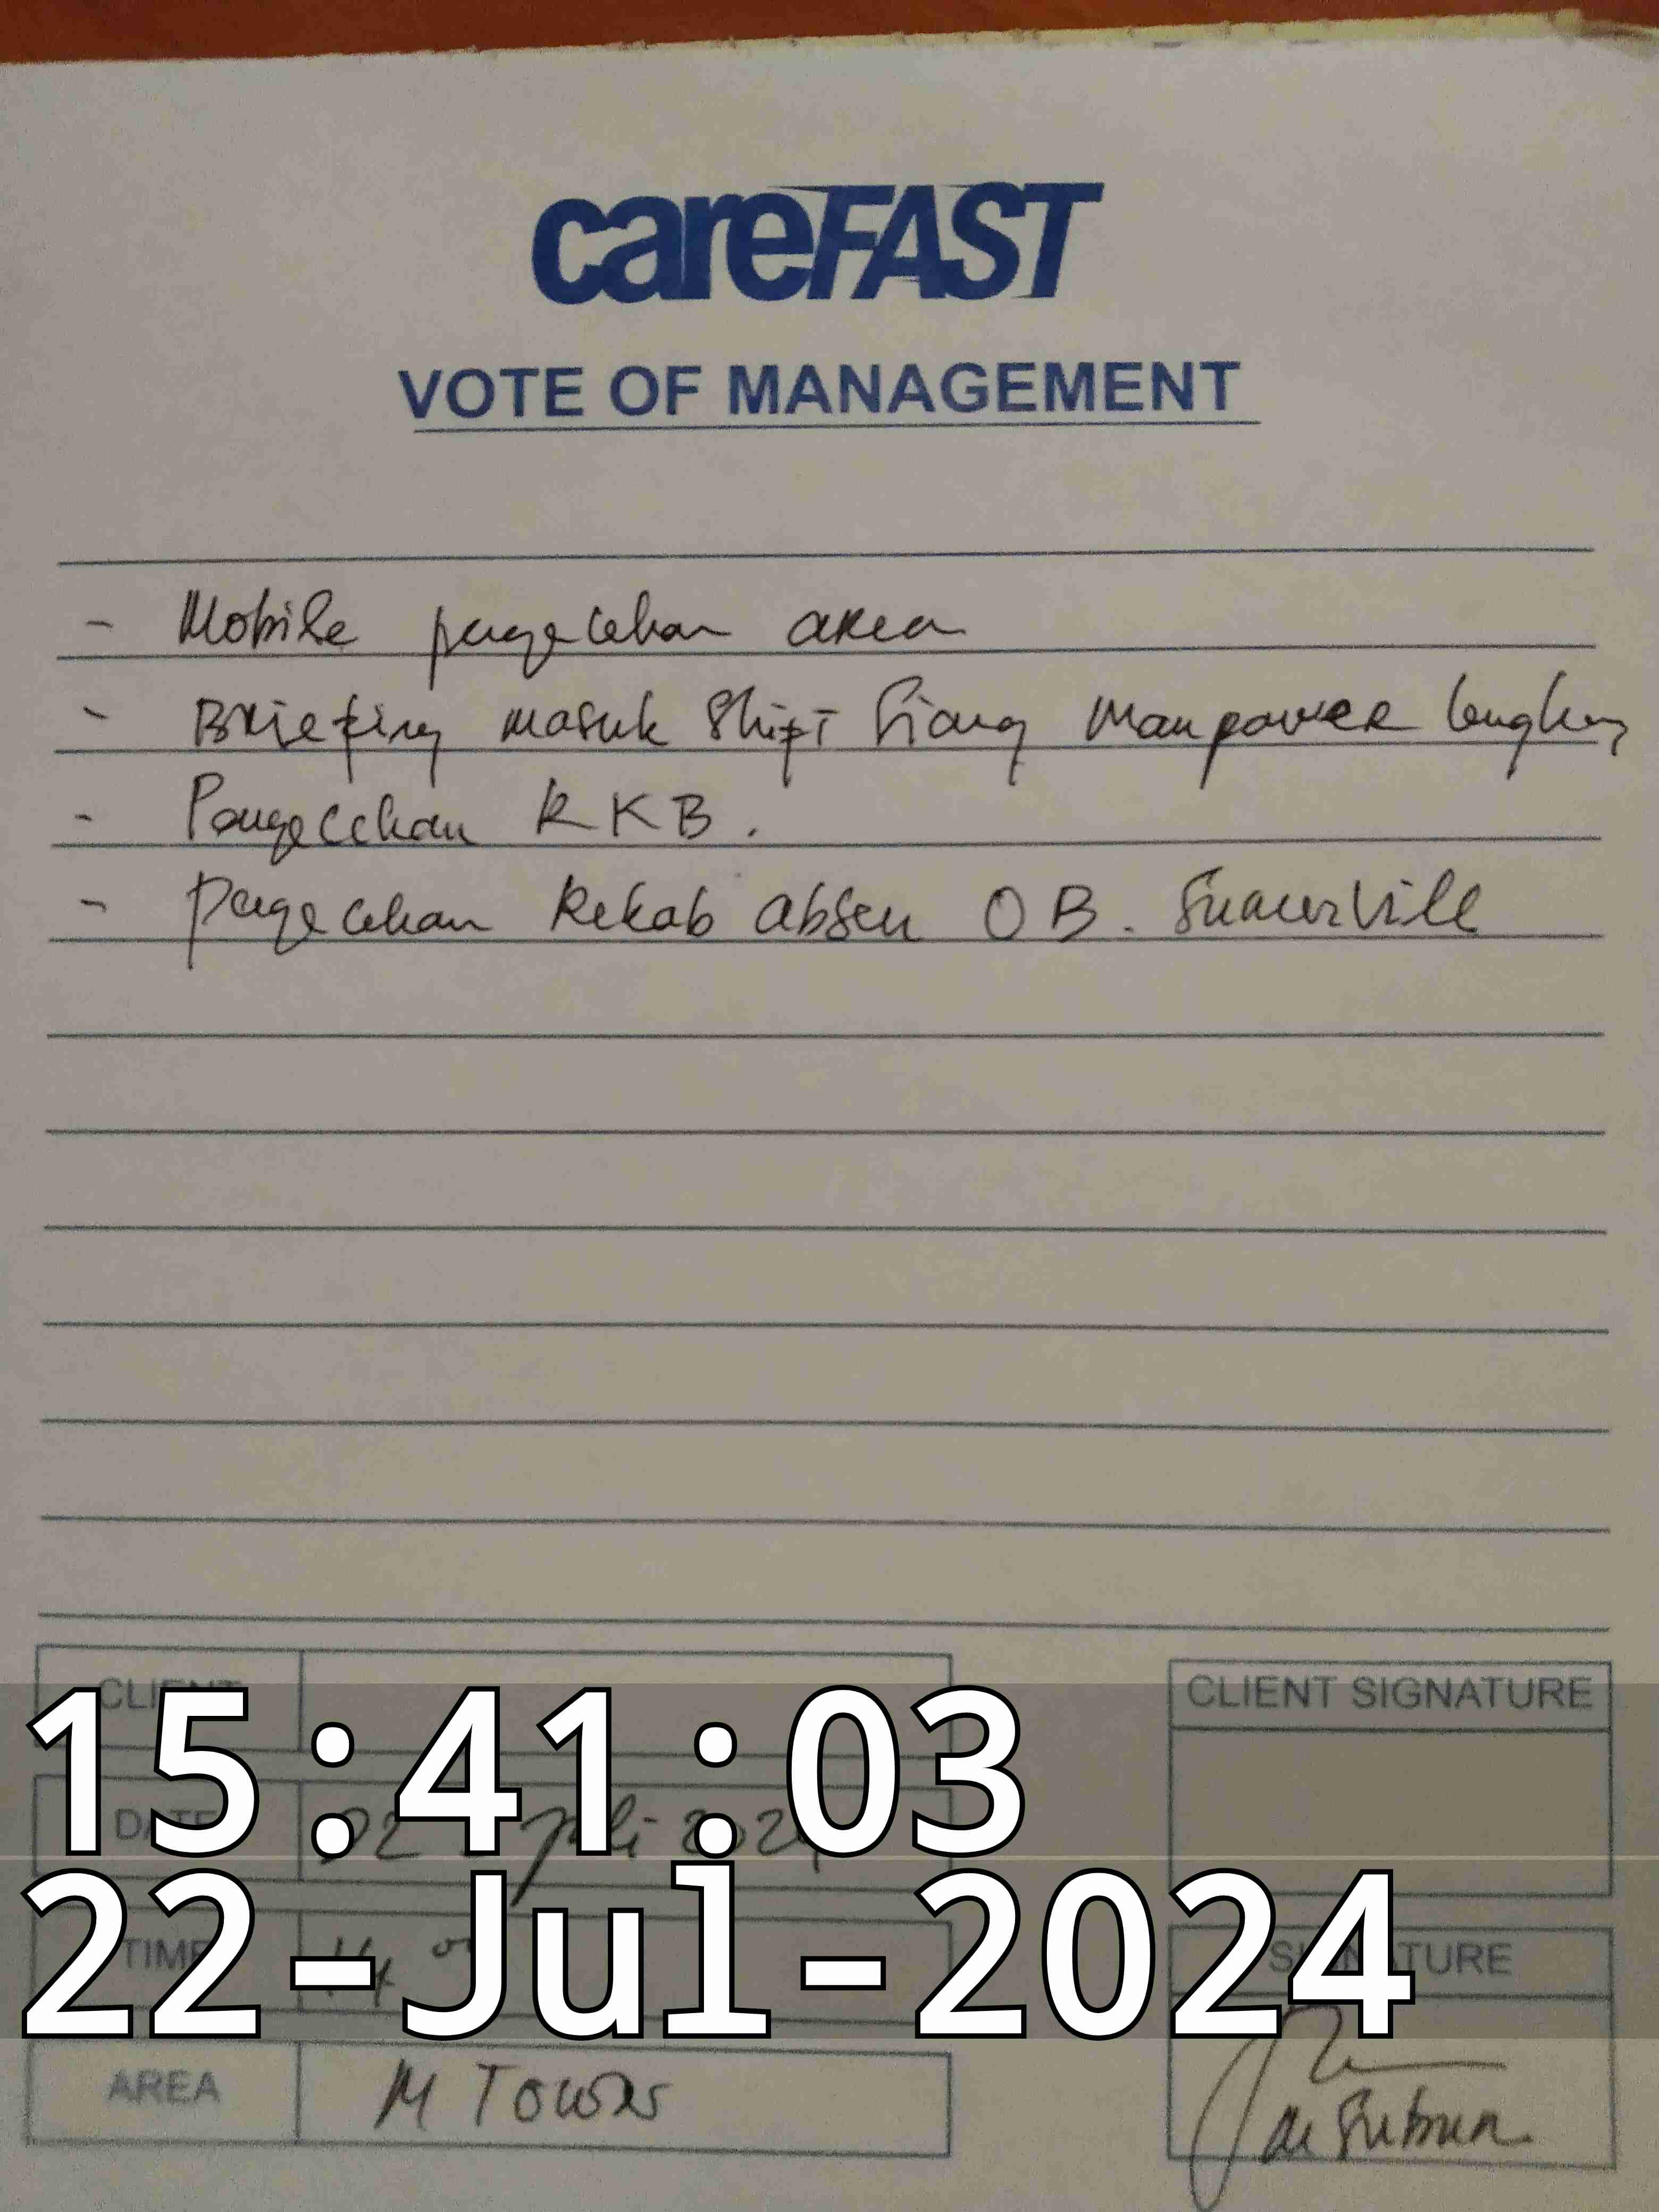 careFAST
VOTE OF MANAGEMENT
- Mobile pengecekan area
- Briefing masuk Shift Siang Manpower lengkap
- Pengecekan RKB.
- Pengecekan Rekab absen OB. Sumervill
CLIENT
CLIENT SIGNATURE
15:41:03
DATE 22 Juli 2024
22-Jul-2024
TIME 14 00
SIGNATURE
AREA M Tower